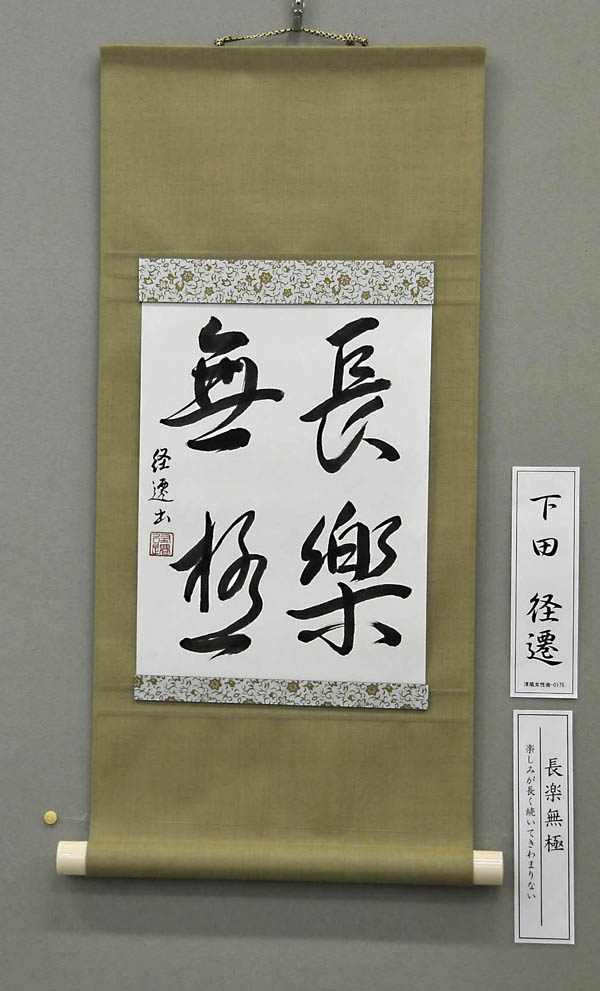 長樂
無極
経遷書
下田 径遷
淳風女性会-0175
長楽無極
楽しみが長く続いてきわまりない